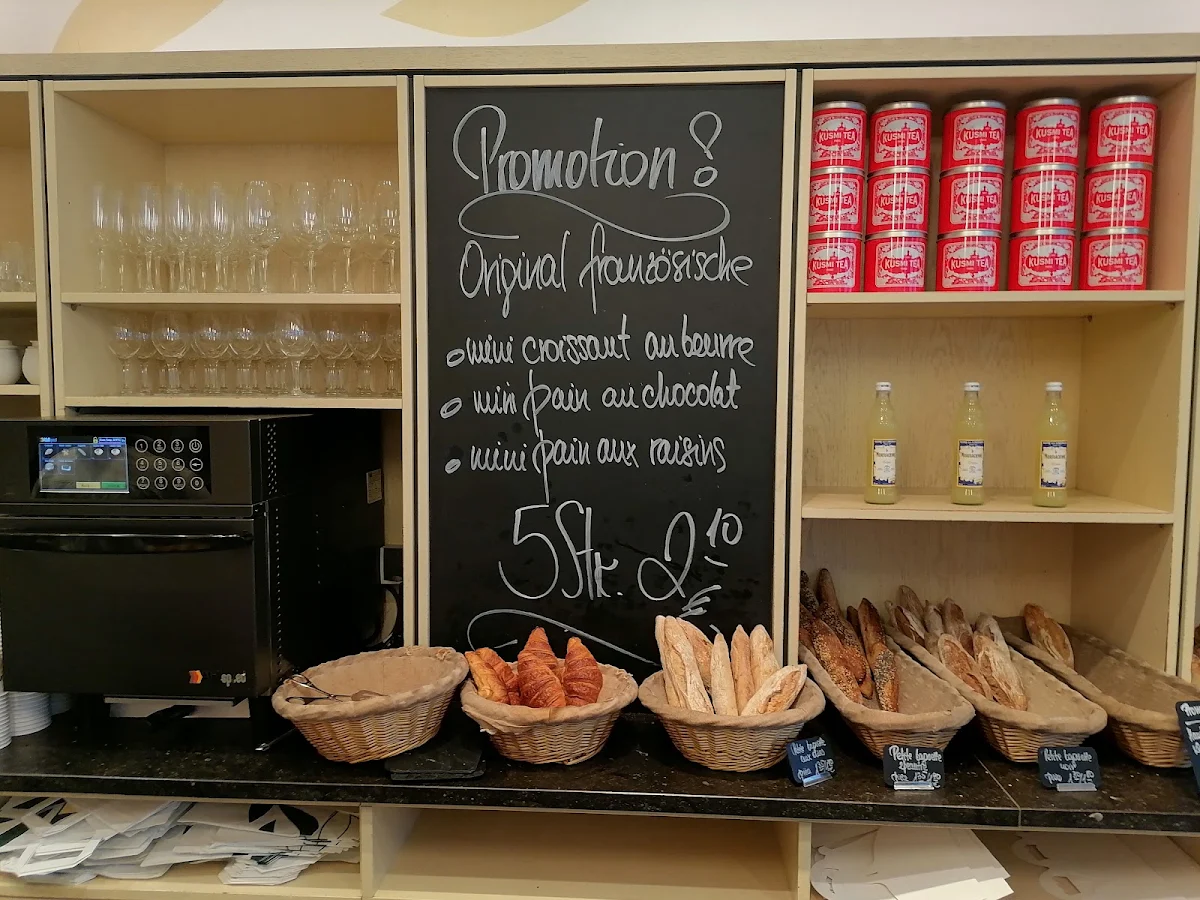 Promotion!
Original französische
mini croissant au beurre
mini pain au chocolat
mini pain aux raisins
5 Stk. 2,10 €
KUSMI TEA
KUSMI TEA
KUSMI TEA
KUSMI TEA
KUSMI TEA
KUSMI TEA
KUSMI TEA
KUSMI TEA
KUSMI TEA
KUSMI TEA
KUSMI TEA
KUSMI TEA
KUSMI TEA
KUSMI TEA
KUSMI TEA
Petite
Petite
Petite